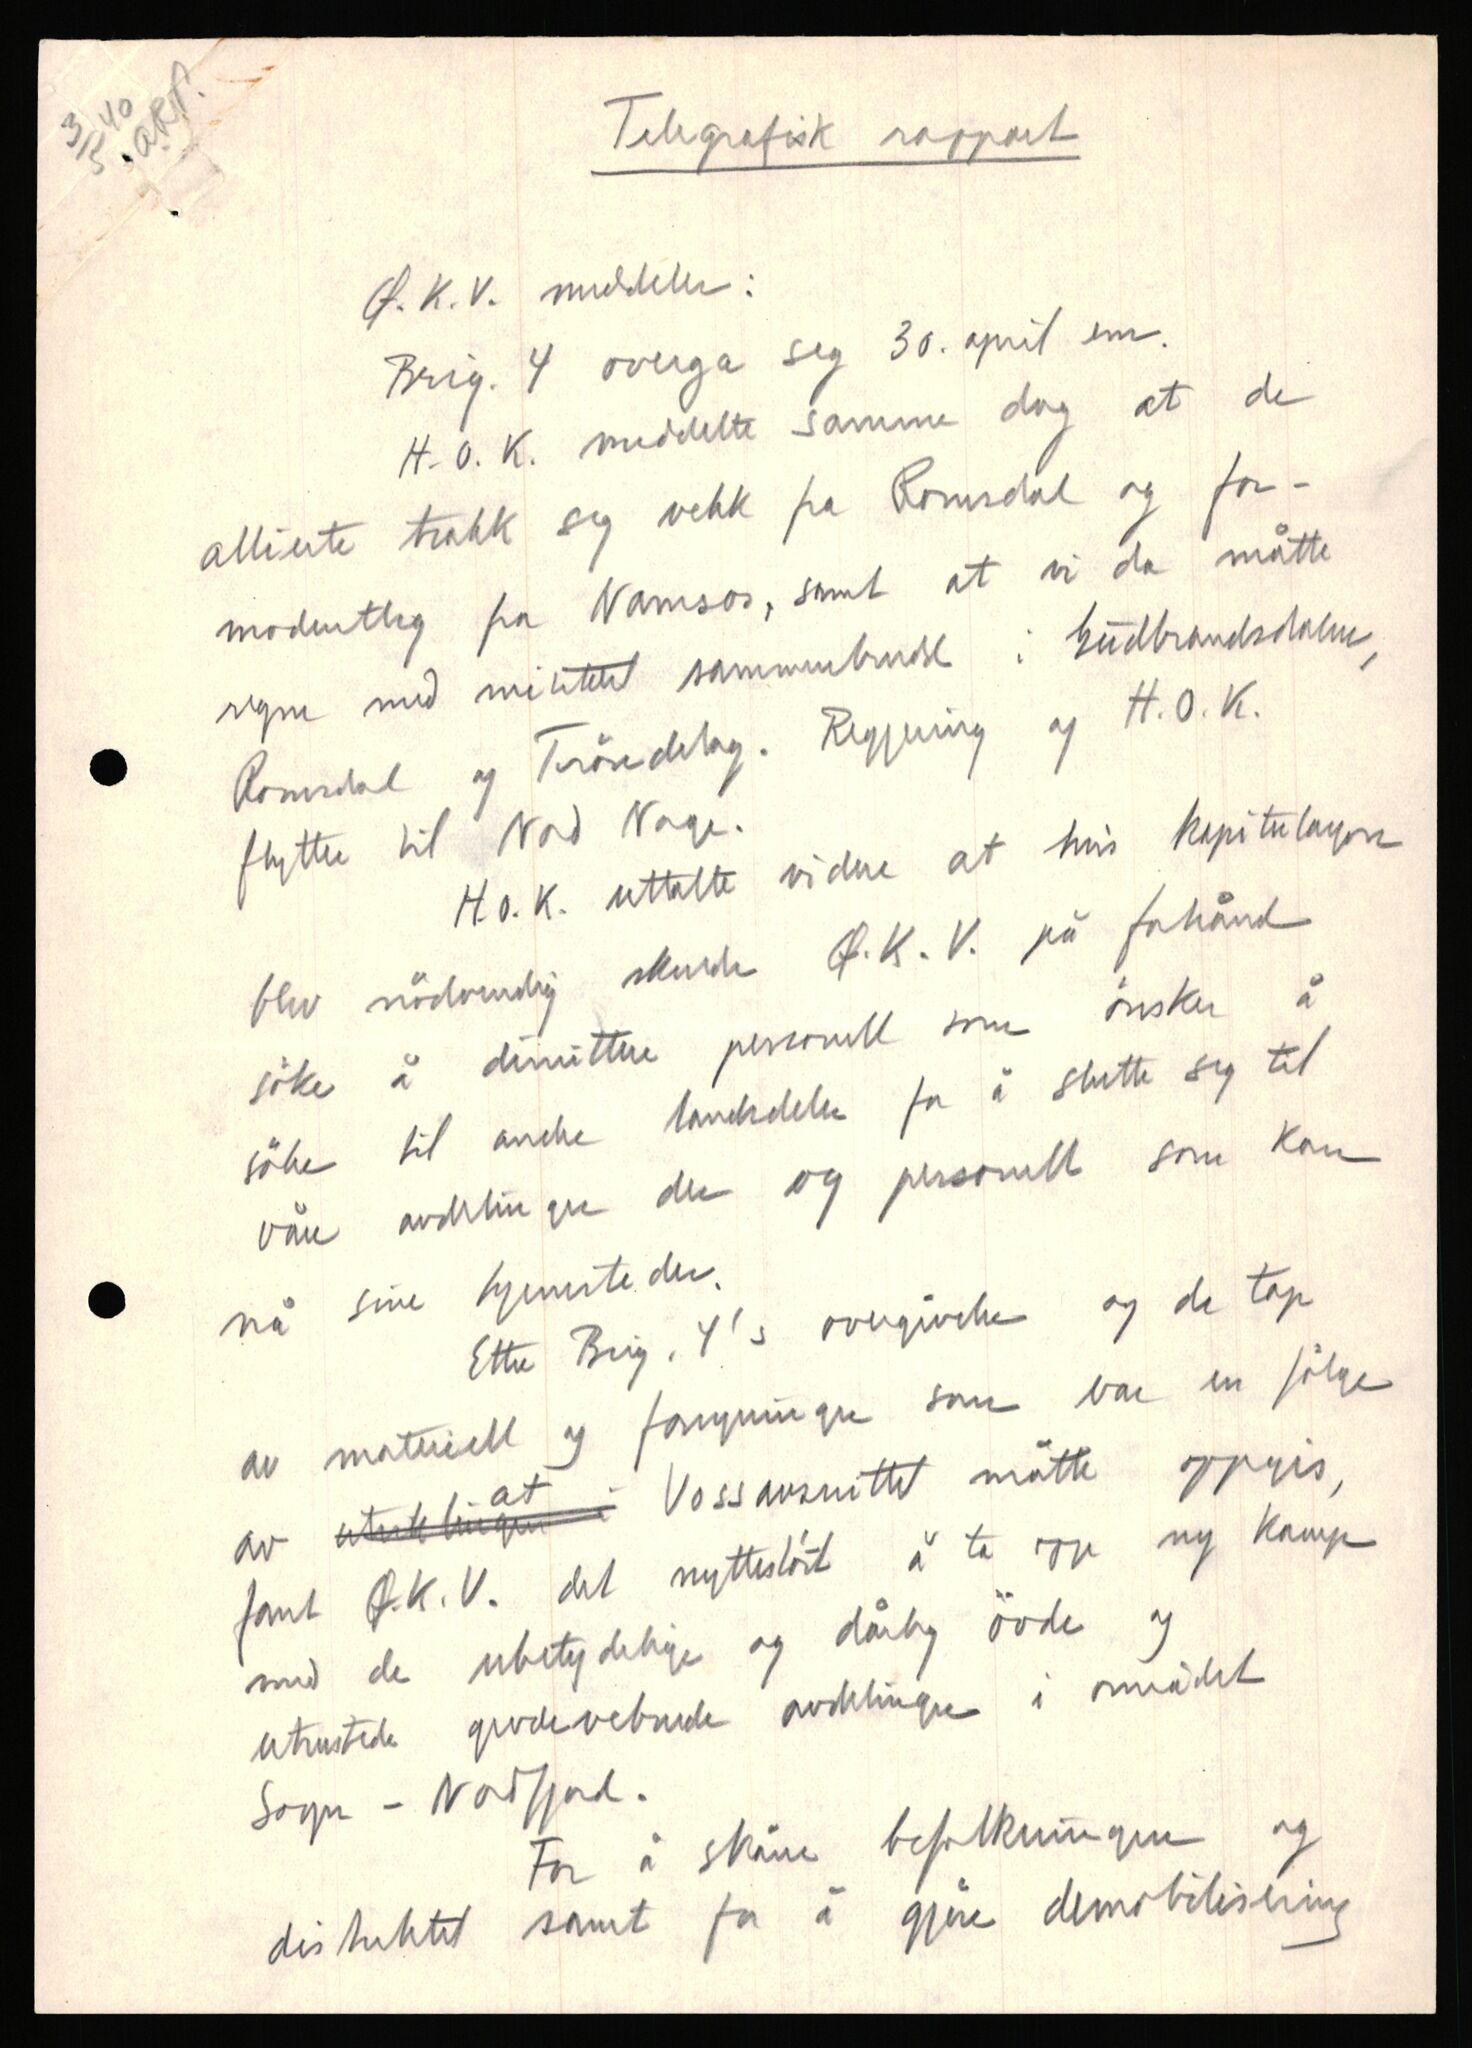 3/5 40
Telegrafisk rapport
Ø.K.V. meddeler:
Brig. 4 overga seg 30. april em.
H.O.K. meddelte samme dag at de
allierte trakk seg vekk fra Romsdal og for-
modentlig fra Namsos, samt at vi da måtte
regne med militært sammenbrudd i Gudbrandsdalen,
Romsdal og Tröndelag. Regjering og H.O.K.
flytter til Nord Norge.
H.O.K. uttalte videre at hvis kapitulasjon
blev nödvendig skulde Ø.K.V. på forhånd
söke å dimittere personell som önsker å
söke til andre landsdeler for å slutte seg til
våre avdelinger der og personell som kan
nå sine hjemsteder.
Etter Brig. 4's overgivelse og de tap
av materiell og forsyninger som var en fölge
av at Vossavsnittet måtte oppgis,
fant Ø.K.V. det nyttelöst å ta opp ny kamp
med de ubetydelige og dårlig övde og
utrustede gjenværende avdelinger i området
Sogn - Nordfjord.
For å skåne befolkningen og
distriktet samt for å gjöre demobilisering